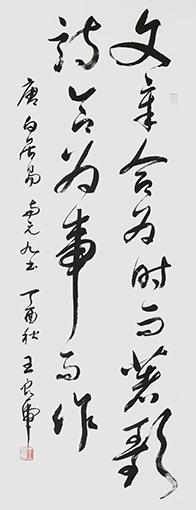 文章合为时而著歌
诗合为事而作
唐白居易与元九书丁酉秋王良虎